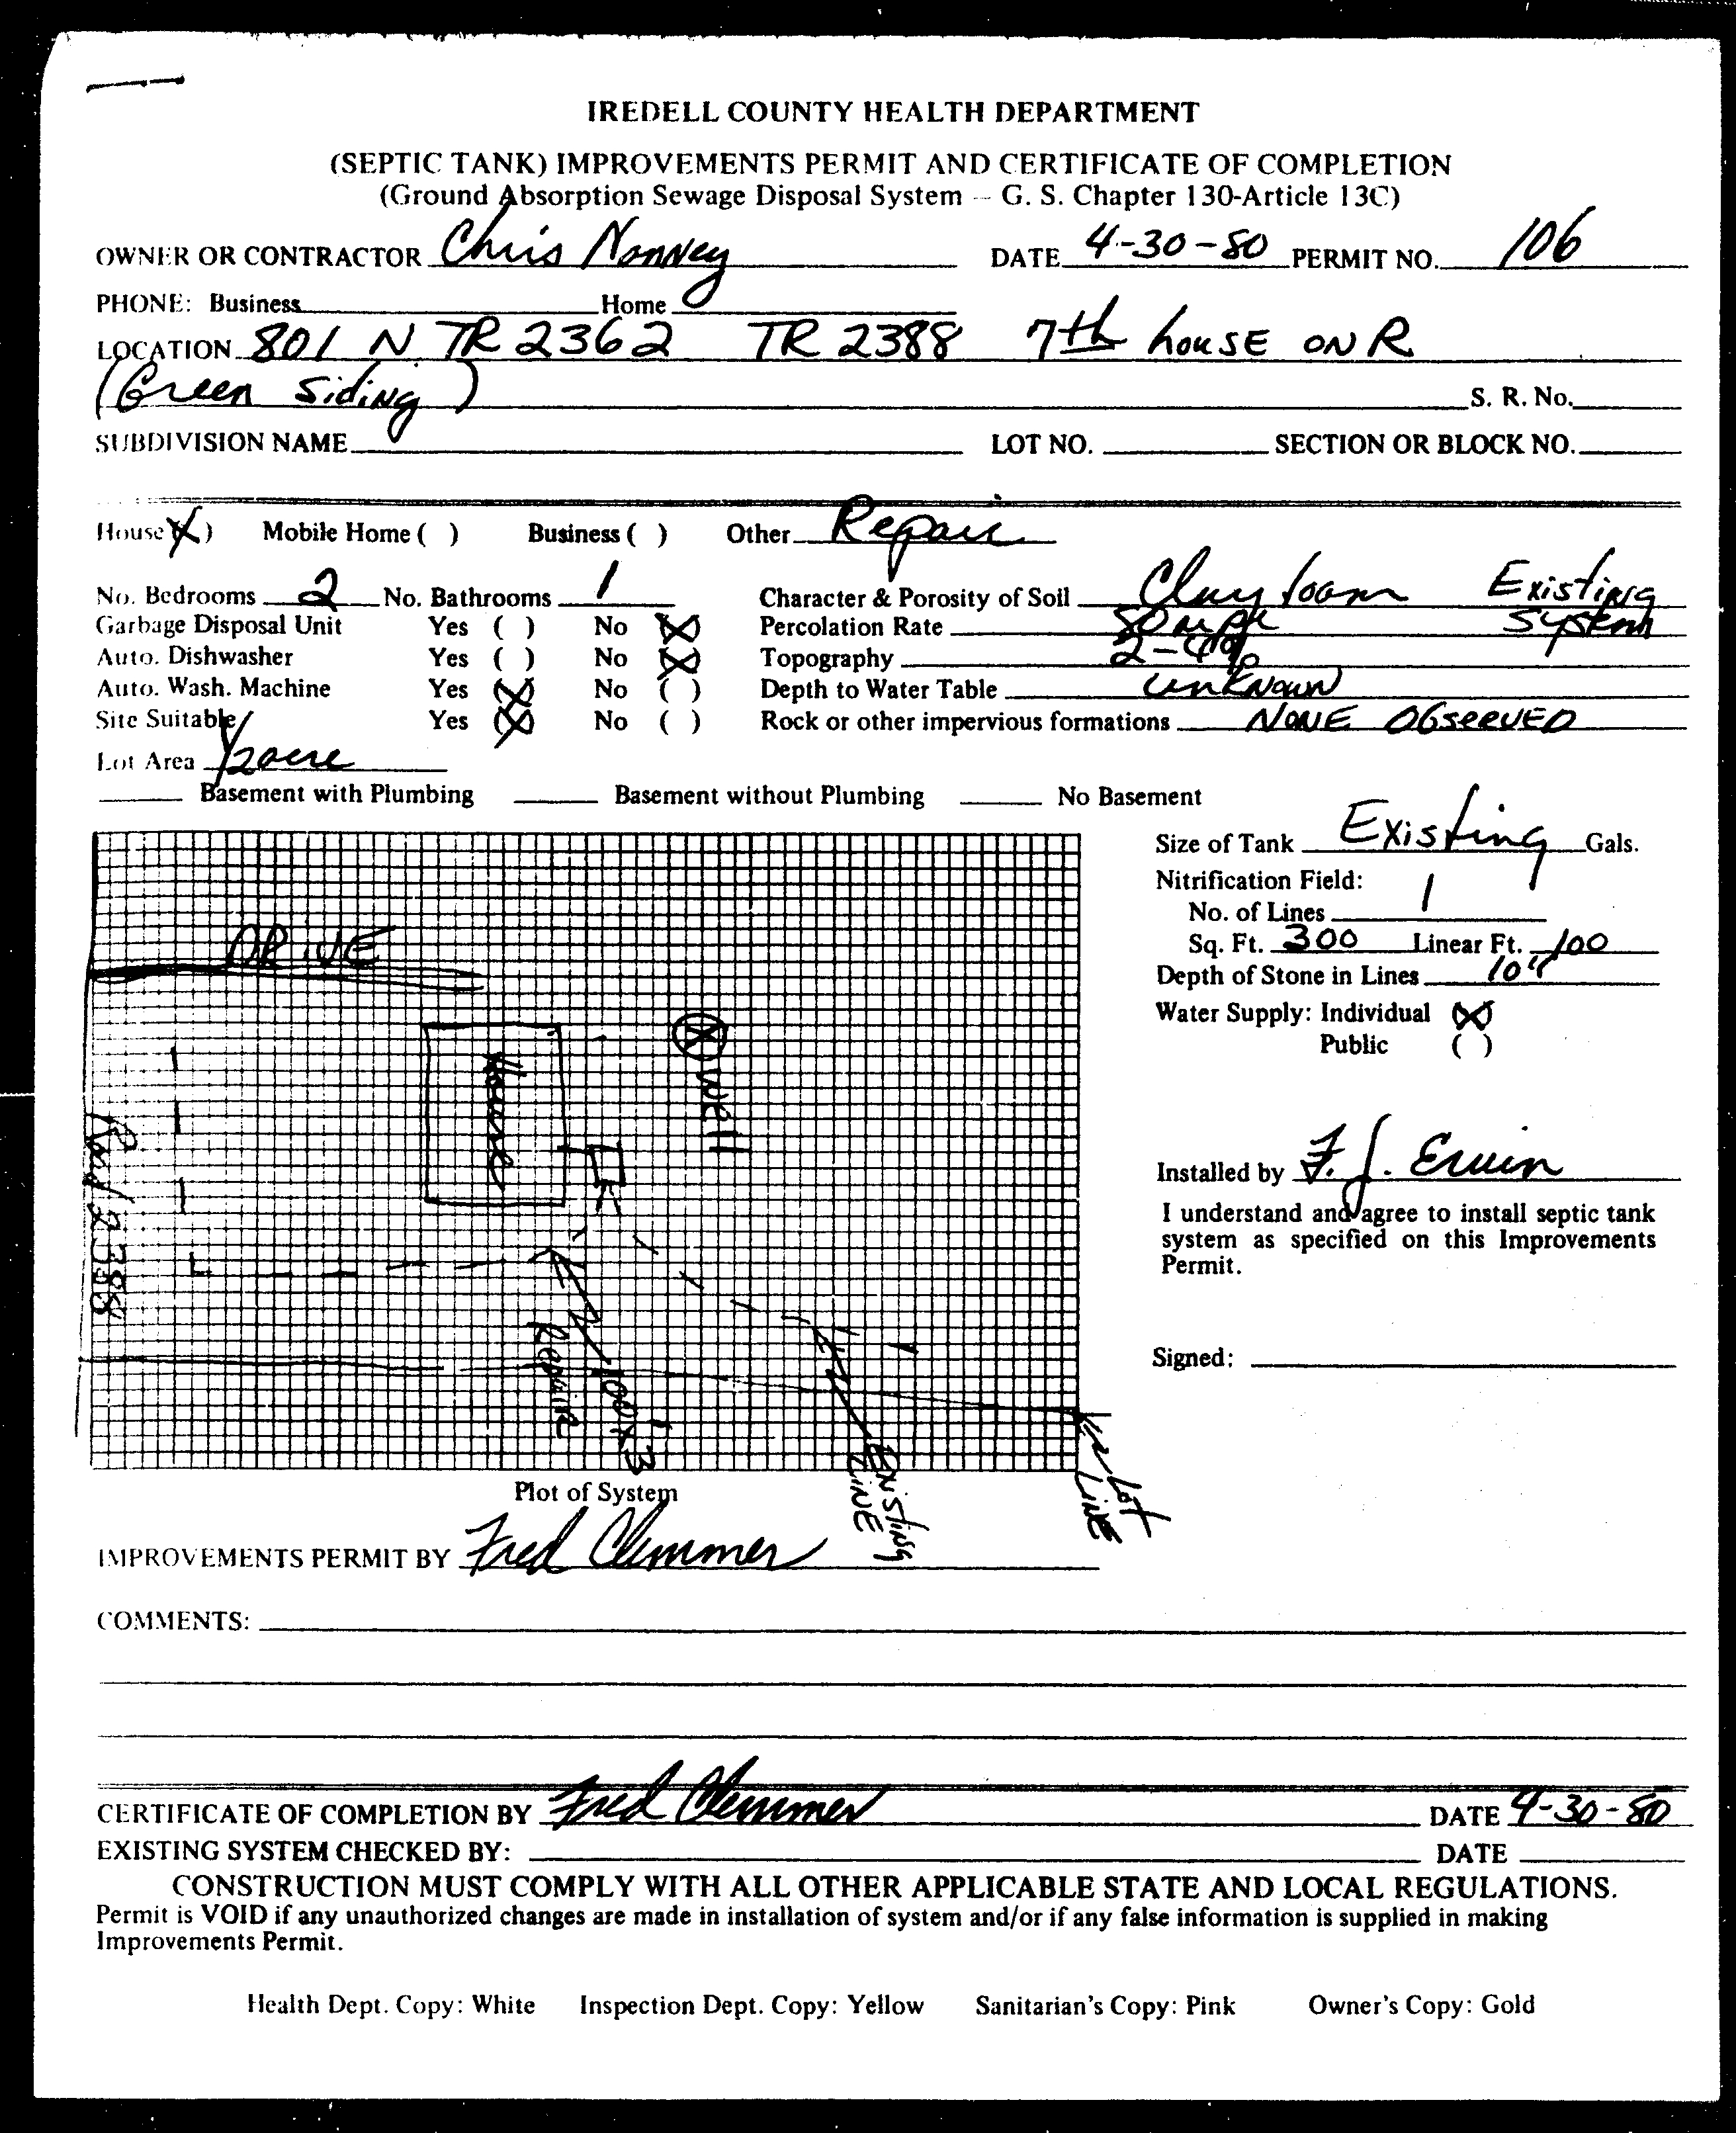 IREDELL COUNTY HEALTH DEPARTMENT
(SEPTIC TANK) IMPROVEMENTS PERMIT AND CERTIFICATE OF COMPLETION
(Ground Absorption Sewage Disposal System – G. S. Chapter 130-Article 13C)
OWNER OR CONTRACTOR Chris DATE 4-30-80 PERMIT NO. 106
PHONE: Business Home
LOCATION 801 N TR 2362 TR 2388 7th house ON R
(Green Siding) S. R. No.
SUBDIVISION NAME LOT NO. SECTION OR BLOCK NO.
House (X) Mobile Home ( ) Business ( ) Other Repair
No. Bedrooms 2 No. Bathrooms 1 Character & Porosity of Soil Clay loam Existing
Garbage Disposal Unit Yes ( ) No (X) Percolation Rate 80 System
Auto. Dishwasher Yes ( ) No (X) Topography 2-4%
Auto. Wash. Machine Yes (X) No ( ) Depth to Water Table unknown
Site Suitable Yes (X) No ( ) Rock or other impervious formations NONE OBSERVED
Lot Area 1/2 acre
Basement with Plumbing Basement without Plumbing No Basement
Size of Tank Existing Gals.
Nitrification Field:
No. of Lines 1
Sq. Ft. 300 Linear Ft. 100
Depth of Stone in Lines 10"
Water Supply: Individual (X)
Public ( )
DRIVE
House
WELL
Road 2388
Repair
100 X 3
EXISTING
LINE
LOT
LINE
Installed by F. J. Erwin
I understand and agree to install septic tank
system as specified on this Improvements
Permit.
Signed:
Plot of System
IMPROVEMENTS PERMIT BY Fred Clemmer
COMMENTS:
CERTIFICATE OF COMPLETION BY Fred Clemmer DATE 4-30-80
EXISTING SYSTEM CHECKED BY: DATE
CONSTRUCTION MUST COMPLY WITH ALL OTHER APPLICABLE STATE AND LOCAL REGULATIONS.
Permit is VOID if any unauthorized changes are made in installation of system and/or if any false information is supplied in making
Improvements Permit.
Health Dept. Copy: White Inspection Dept. Copy: Yellow Sanitarian's Copy: Pink Owner's Copy: Gold